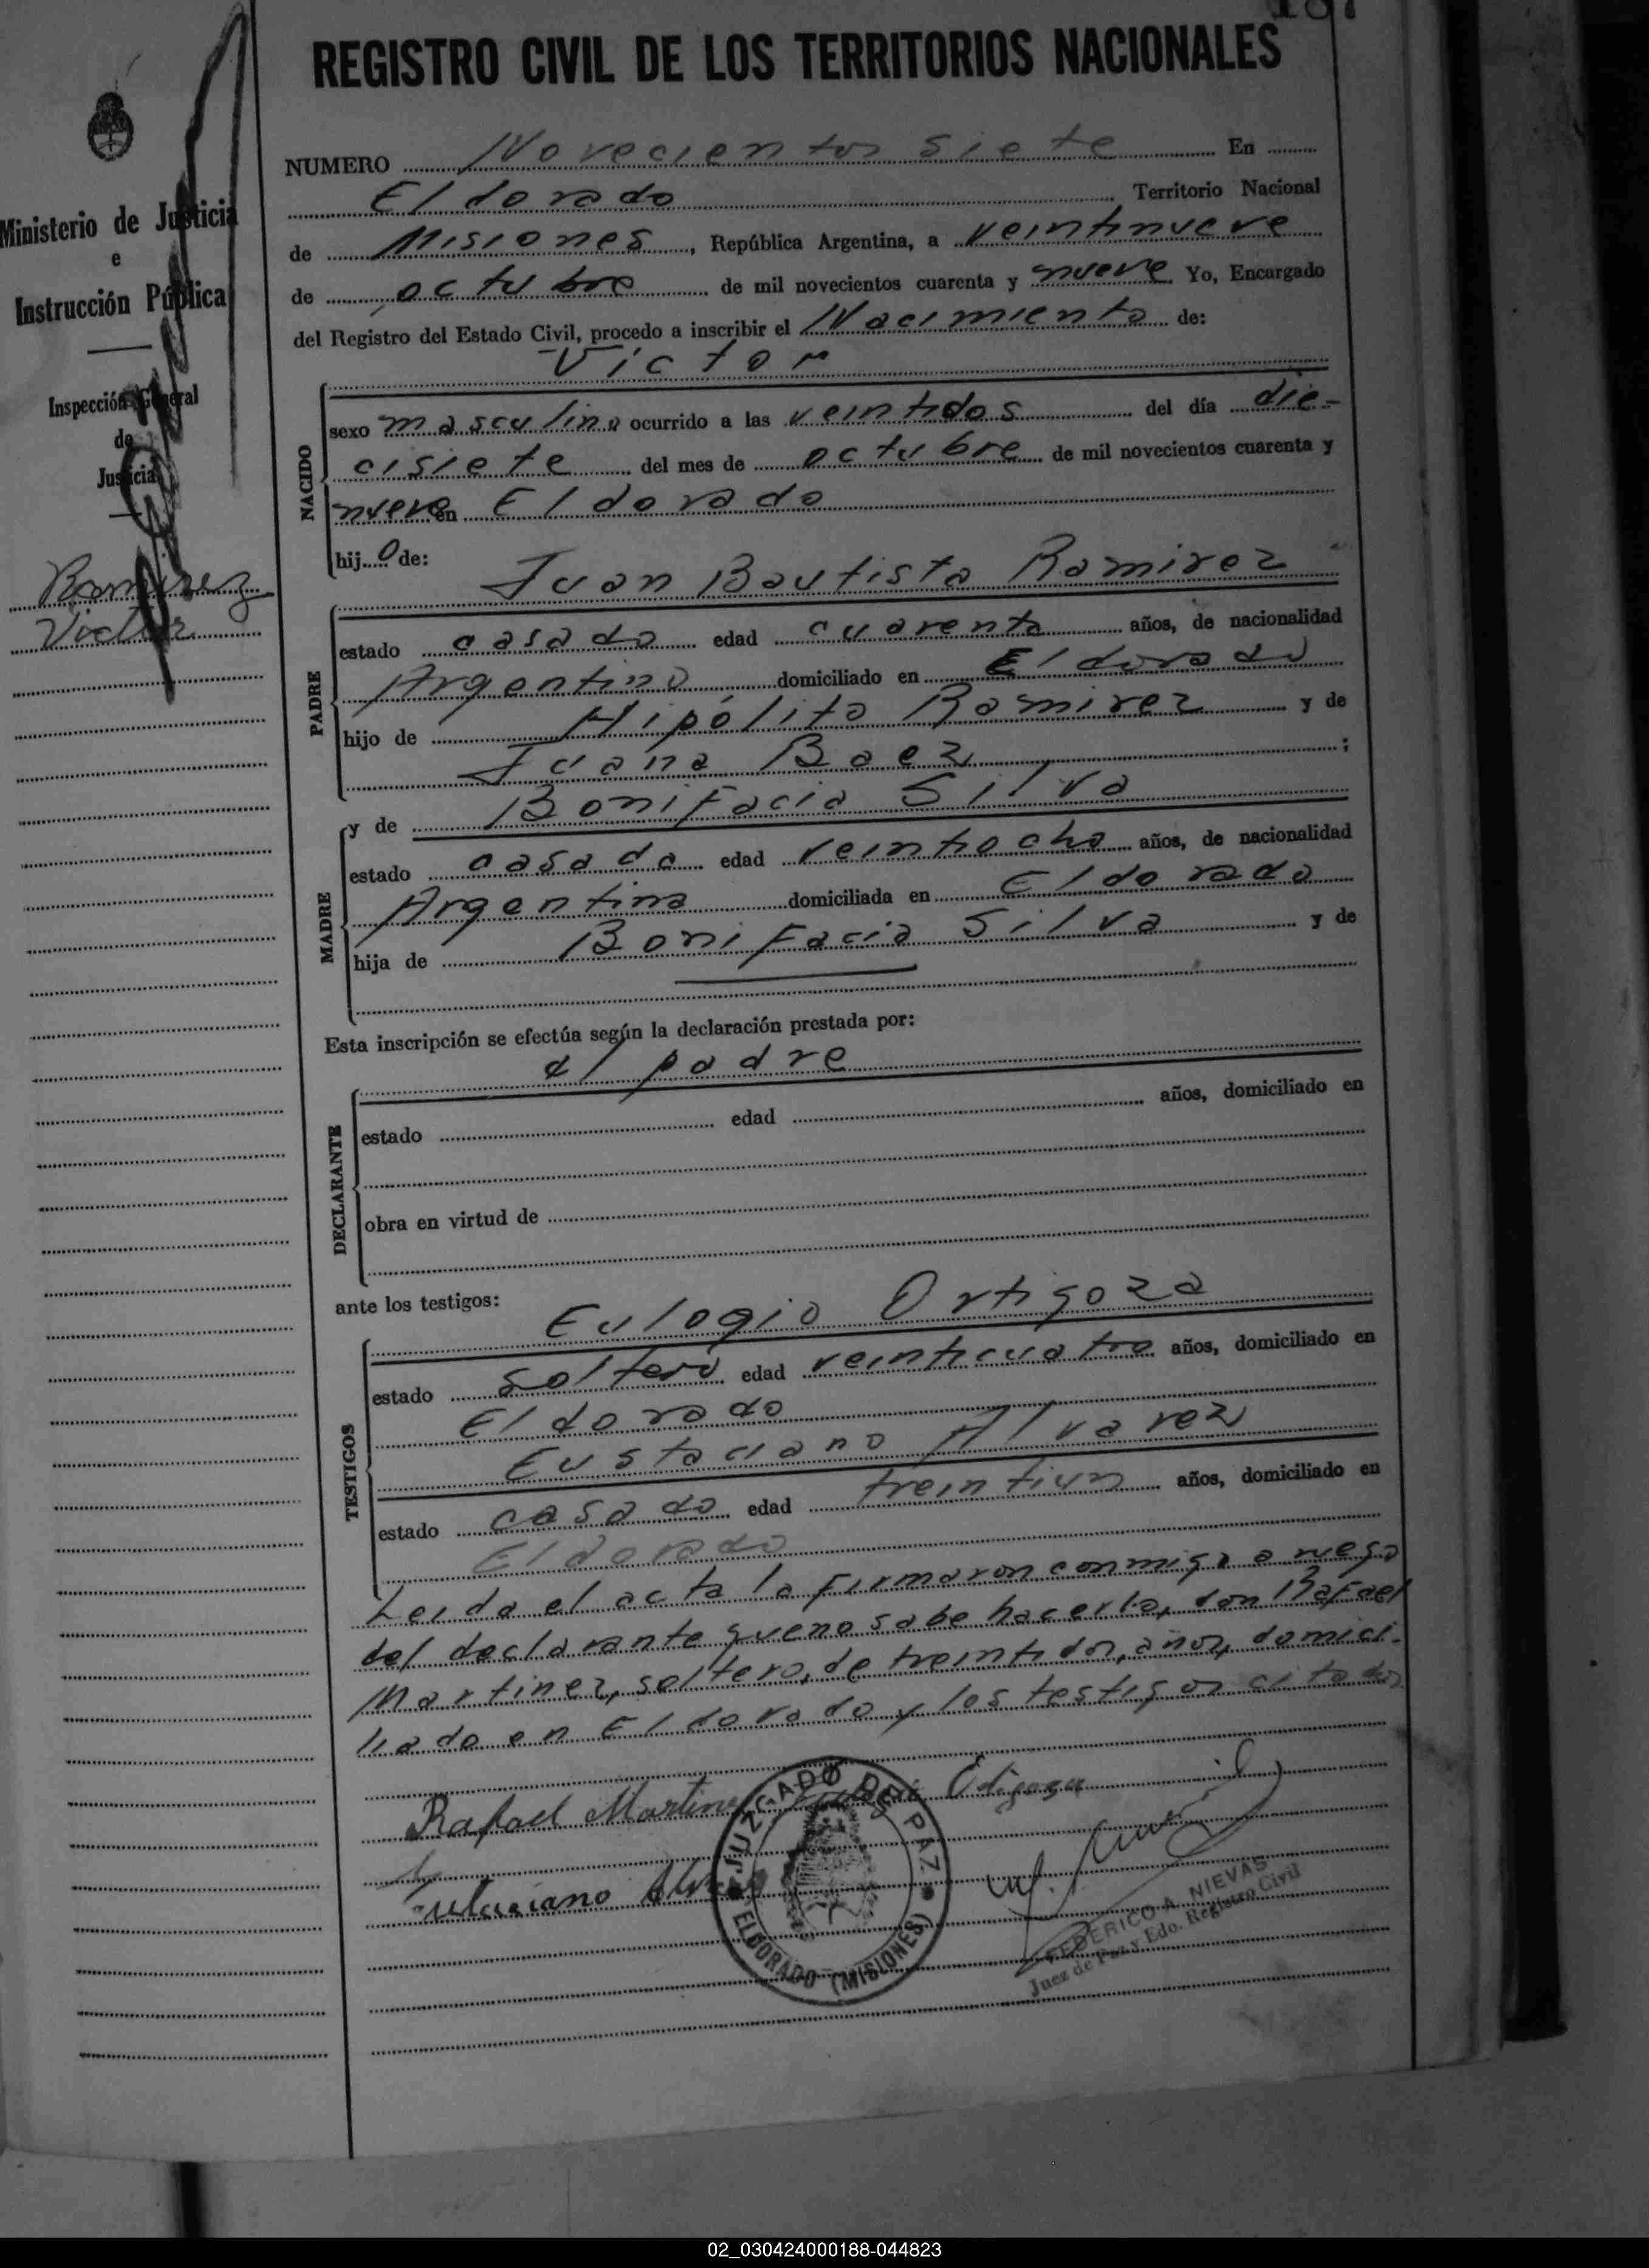 187
REGISTRO CIVIL DE LOS TERRITORIOS NACIONALES
Ministerio de Justicia
e
Instrucción Pública
Inspección General
de
Justicia
Ramirez
Victor
NUMERO Novecientos siete En
Eldorado Territorio Nacional
de Misiones, República Argentina, a veintinueve
de octubre de mil novecientos cuarenta y nueve Yo, Encargado
del Registro del Estado Civil, procedo a inscribir el Nacimiento de:
Victor
NACIDO
sexo masculino ocurrido a las veintidos del día die-
cisiete del mes de octubre de mil novecientos cuarenta y
nueve en Eldorado
hijo de:
Juan Bautista Ramirez
PADRE
estado casado edad cuarenta años, de nacionalidad
Argentino domiciliado en Eldorado
hijo de Hipólito Ramirez y de
Juana Baez ;
y de Bonifacia Silva
MADRE
estado casada edad veintiocho años, de nacionalidad
Argentina domiciliada en Eldorado
hija de Bonifacia Silva y de
Esta inscripción se efectúa según la declaración prestada por:
el padre
DECLARANTE
estado edad años, domiciliado en
obra en virtud de
ante los testigos:
Eulogio Ortigoza
TESTIGOS
estado soltero edad veinticuatro años, domiciliado en
Eldorado
Eustaciano Alvarez
estado casado edad treintiun años, domiciliado en
Eldorado
Leida el acta la firmaron conmigo a ruego
del declarante que no sabe hacerlo, don Rafael
Martinez, soltero, de treintidos, años, domici-
liado en Eldorado y los testigos citados
Rafael Martinez
JUZGADO DE PAZ
ELDORADO (MISIONES)
FEDERICO A. NIEVAS
Juez de Paz y Edo. Registro Civil
02_030424000188-044823